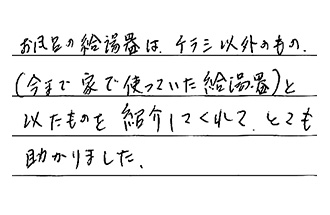 お風呂の給湯器は、チラシ以外のもの、
(今まで家で使っていた給湯器)と
以たものを紹介してくれて、とても
助かりました、